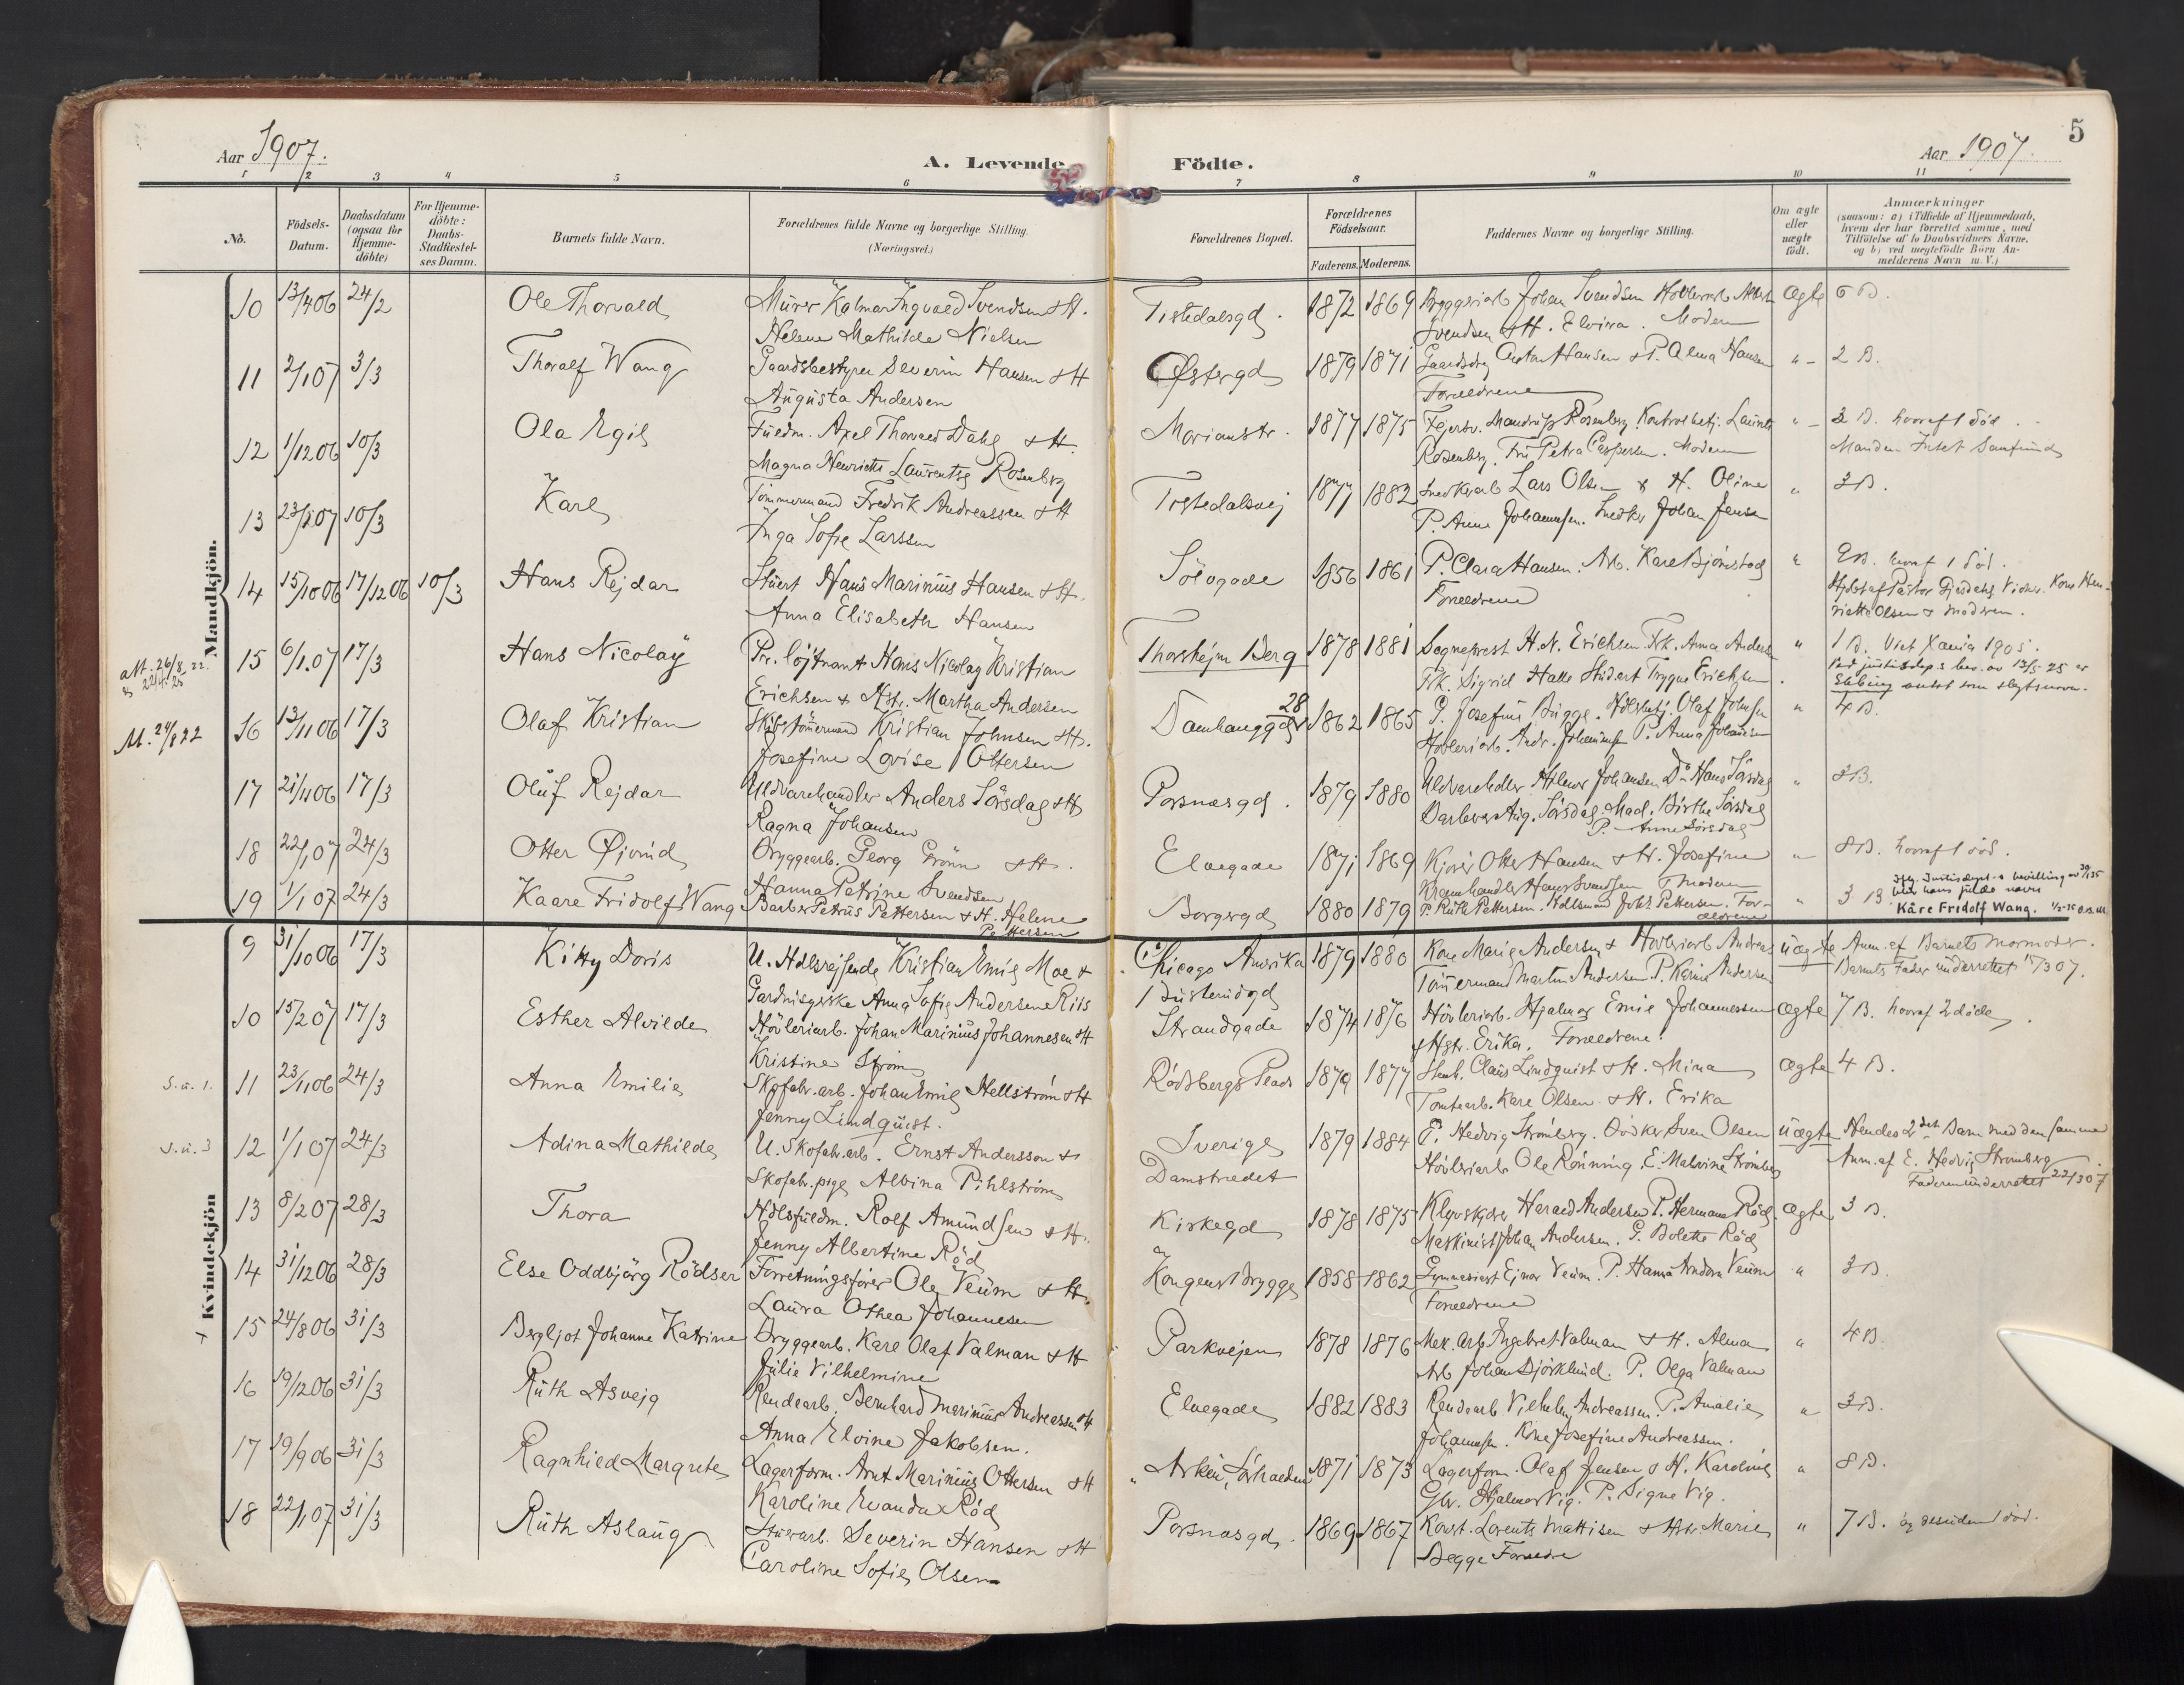 Aar 1907.
A. Levende Födte.
Aar 1907.
5
1 2 3 4 5 6 7 8 9 10 11
No.
Födsels-Datum.
Daabsdatum (ogsaa for Hjemme-döbte)
For Hjemme-döbte: Daabs-Stadfæstel-ses Datum.
Barnets fulde Navn.
Forældrenes fulde Navne og borgerlige Stilling. (Næringsvei.)
Forældrenes Bopæl.
Forældrenes Födselsaar.
Faderens. Moderens.
Faddernes Navne og borgerlige Stilling.
Om ægte eller uægte födt.
Anmærkninger
(saasom: a) i Tilfælde af Hjemmedaab,
hvem der har forrettet samme, med
Tilföielse af to Daabsvidners Navne,
og b) ved uægtefödte Börn An-
melderens Navn m. V.)
Mandkjön.
10 13/4 06 24/2 Ole Thorvald Murer Hjalmar Ingvald Svendsen & H. Tistedalsgd. 1872 1869 Bryggeriarb. Johan Svendsen Ægte 6 B.
Helene Mathilde Nielsen Svendsen & H. Elvira. Moderen
11 2/1 07 3/3 Thoralf Wang Gaardsbestyrer Severin Hansen & H Østergd 1879 1871 Gaardsbr. Anton Hansen & P. Alma Hansen " 2 B.
Augusta Andersen Forældrene
12 1/12 06 10/3 Ola Egil Fuldm. Axel Thorvald Dahl & H. Marianstr. 1877 1875 Mandrup Rosenberg Laurentz " 2 B. hvoraf 1 död.
Magna Henriette Laurentze Rosenberg Rosenberg. Fru Petra Caspersen. Moderen Manden Intet Samfund
13 23/2 07 10/3 Karl Tömmermand Fredrik Andreassen & H Tistedalsvej 1877 1882 Snedkerarb. Lars Olsen & H. Oline " 3 B.
Inga Sofie Larssen P. Anna Johannesen. Snedker Johan Jensen
14 15/10 06 17/12 06 10/3 Hans Rejdar Stuert Hans Marinius Hansen & H. Sölvgade 1856 1861 P. Clara Hansen. Arb. Kare Björnstad " 9 B. hvoraf 1 död.
Anna Elisabeth Hansen Forældrene Hjdöbt af Pastor Gjerdahl Vidner Kone Hen-
riette Olsen & Moderen.
att. 26/8 22.
15 6/1 07 17/3 Hans Nicolay Pr. löjtnant Hans Nicolay Kristian Thorshejm Berg 1878 1881 Sogneprest H. N. Erichsen Frk. Anna Andersen " 1 B. Viet Xania 1905.
Erichsen & Hstr. Martha Andersen Frk. Sigrid Halle Student Trygve Erichsen. Ved justisdep.s bev. av 13/5 25 er
Stabing antat som slegtsnavn.
At. 24/8 22
16 13/11 06 17/3 Olaf Kristian Skibstömmermand Kristian Johnsen & H. Damhauggd 28 1862 1865 P. Josefine Bugge. Olaf Johnsen " 4 B.
Josefine Lovise Ottersen Hövleriarb. Andr. Johannesen P. Anna Johansen
17 21/11 06 17/3 Oluf Rejdar Uldvarehandler Anders Sörsdag & H Porsnæsgd. 1879 1880 Uldvarehdler Hilmar Johansen Do Hans Sörsdag " 2 B.
Ragna Johansen Barberer Aug. Sörsdag Mad. Birthe Sörsdag
P. Anne Sörsdag
18 22/1 07 24/3 Otter Øjvind Bryggearb. Georg Grönn & H. Elvegade 1871 1869 Kjörer Otter Hansen & H. Josefine " 8 B. hvoraf 1 död.
Hanna Petrine Svendsen Kramhandler Hans Svendsen Moderen
19 1/1 07 24/3 Kaare Fridolf Wang Barber Petrus Pettersen & H. Helene Borgergd 1880 1879 P. Ruth Pettersen. Johs. Pettersen. For-ældrene " 3 B. Iflg. Justisdept.s bevilling av 30/1 35
Pettersen blir hans fulde navn
Kåre Fridolf Wang.
Kvindekjön
9 31/10 06 17/3 Kitty Doris U. Hdlsrejsende Kristian Emil Moe & Chicago Amerika 1879 1880 Kone Marie Andersen & Hövleriarb. Andreas uægte Anm. af Barnets Mormoder.
Anna Sofie Andersen Tömmermand Martin Andersen P. Karine Andersen Barnets Fader underrettet 17/3 07.
10 15/2 07 17/3 Esther Alvilde Hövleriarb. Johan Marinius Johannesen & H Strandgade 1874 1876 Hövleriarb. Hjalmar Emil Johannessen Ægte 7 B. hvoraf 2 döde.
Kristine Ström & Hstr. Erika. Forældrene.
S. u. 1. 11 23/11 06 24/3 Anna Emilie Skofabr.arb. Johan Emil Hellström & H Rödsbergs Plads 1879 1877 Stenh. Claus Lindquist & H. Mina Ægte 4 B.
Jenny Lindquist. Tomtearb. Kare Olsen & H. Erika
S. u. 3 12 1/1 07 24/3 Adina Mathilde U. Skofabr.arb. Ernst Andersson & Sverige 1879 1884 E. Hedvig Strömberg. Bödker Sven Olsen uægte Hendes 2det Barn med den samme
Skofabr.pige Albina Pihlström Damstredet Hövleriarb. Ole Rönning. E. Malvina Strömberg Anm. af E. Hedvig Strömberg
Faderen underrettet 22/3 07
13 8/2 07 28/3 Thora Hdlsfuldm. Rolf Amundsen & H. Kirkegd 1878 1875 Harald Andersen P. Hermana Röd Ægte 3 B.
Jenny Albertine Röd Maskinist Johan Andersen. P. Bolette Röd
14 31/12 06 28/3 Else Oddbjörg Rödser Forretningsförer Ole Veum & H. Kongens Brygge 1858 1862 Gymnasiast Ejnar Veum. P. Hanna Andora Veum " 3 B.
Laura Othea Johannesen Forældrene
15 24/8 06 31/3 Bergljot Johanne Katrine Bryggearb. Kare Olaf Valman & H Parkvejen 1878 1876 Mek. Arb. Ingebret Valman & H. Alma " 4 B.
Julie Vilhelmine Arb. Johan Björklund. P. Olga Valman
16 19/12 06 31/3 Ruth Asveig Rendearb. Bernhard Marinius Andreassen & H Elvegade 1882 1883 Rendearb. Vilhelm Andreassen. P. Amalie " 3 B.
Anna Elvine Jakobsen. Johannesen. Kone Josefine Andreassen.
17 19/9 06 31/3 Ragnhild Margrete Lagerform. Arnt Marinius Ottersen & H Arken, Sörhalden 1871 1873 Lagerform. Olaf Jensen & H. Karoline " 8 B.
Karoline Evanda Röd Gbr. Hjalmar Vig. P. Signe Vig.
18 22/1 07 31/3 Ruth Aslaug Stuerarb. Severin Hansen & H Porsnæsgd. 1869 1867 Konst. Lorentz Mattisen & Hstr Marie " 7 B. og desuden 1 död.
Caroline Sofie Olsen Begge Forældre